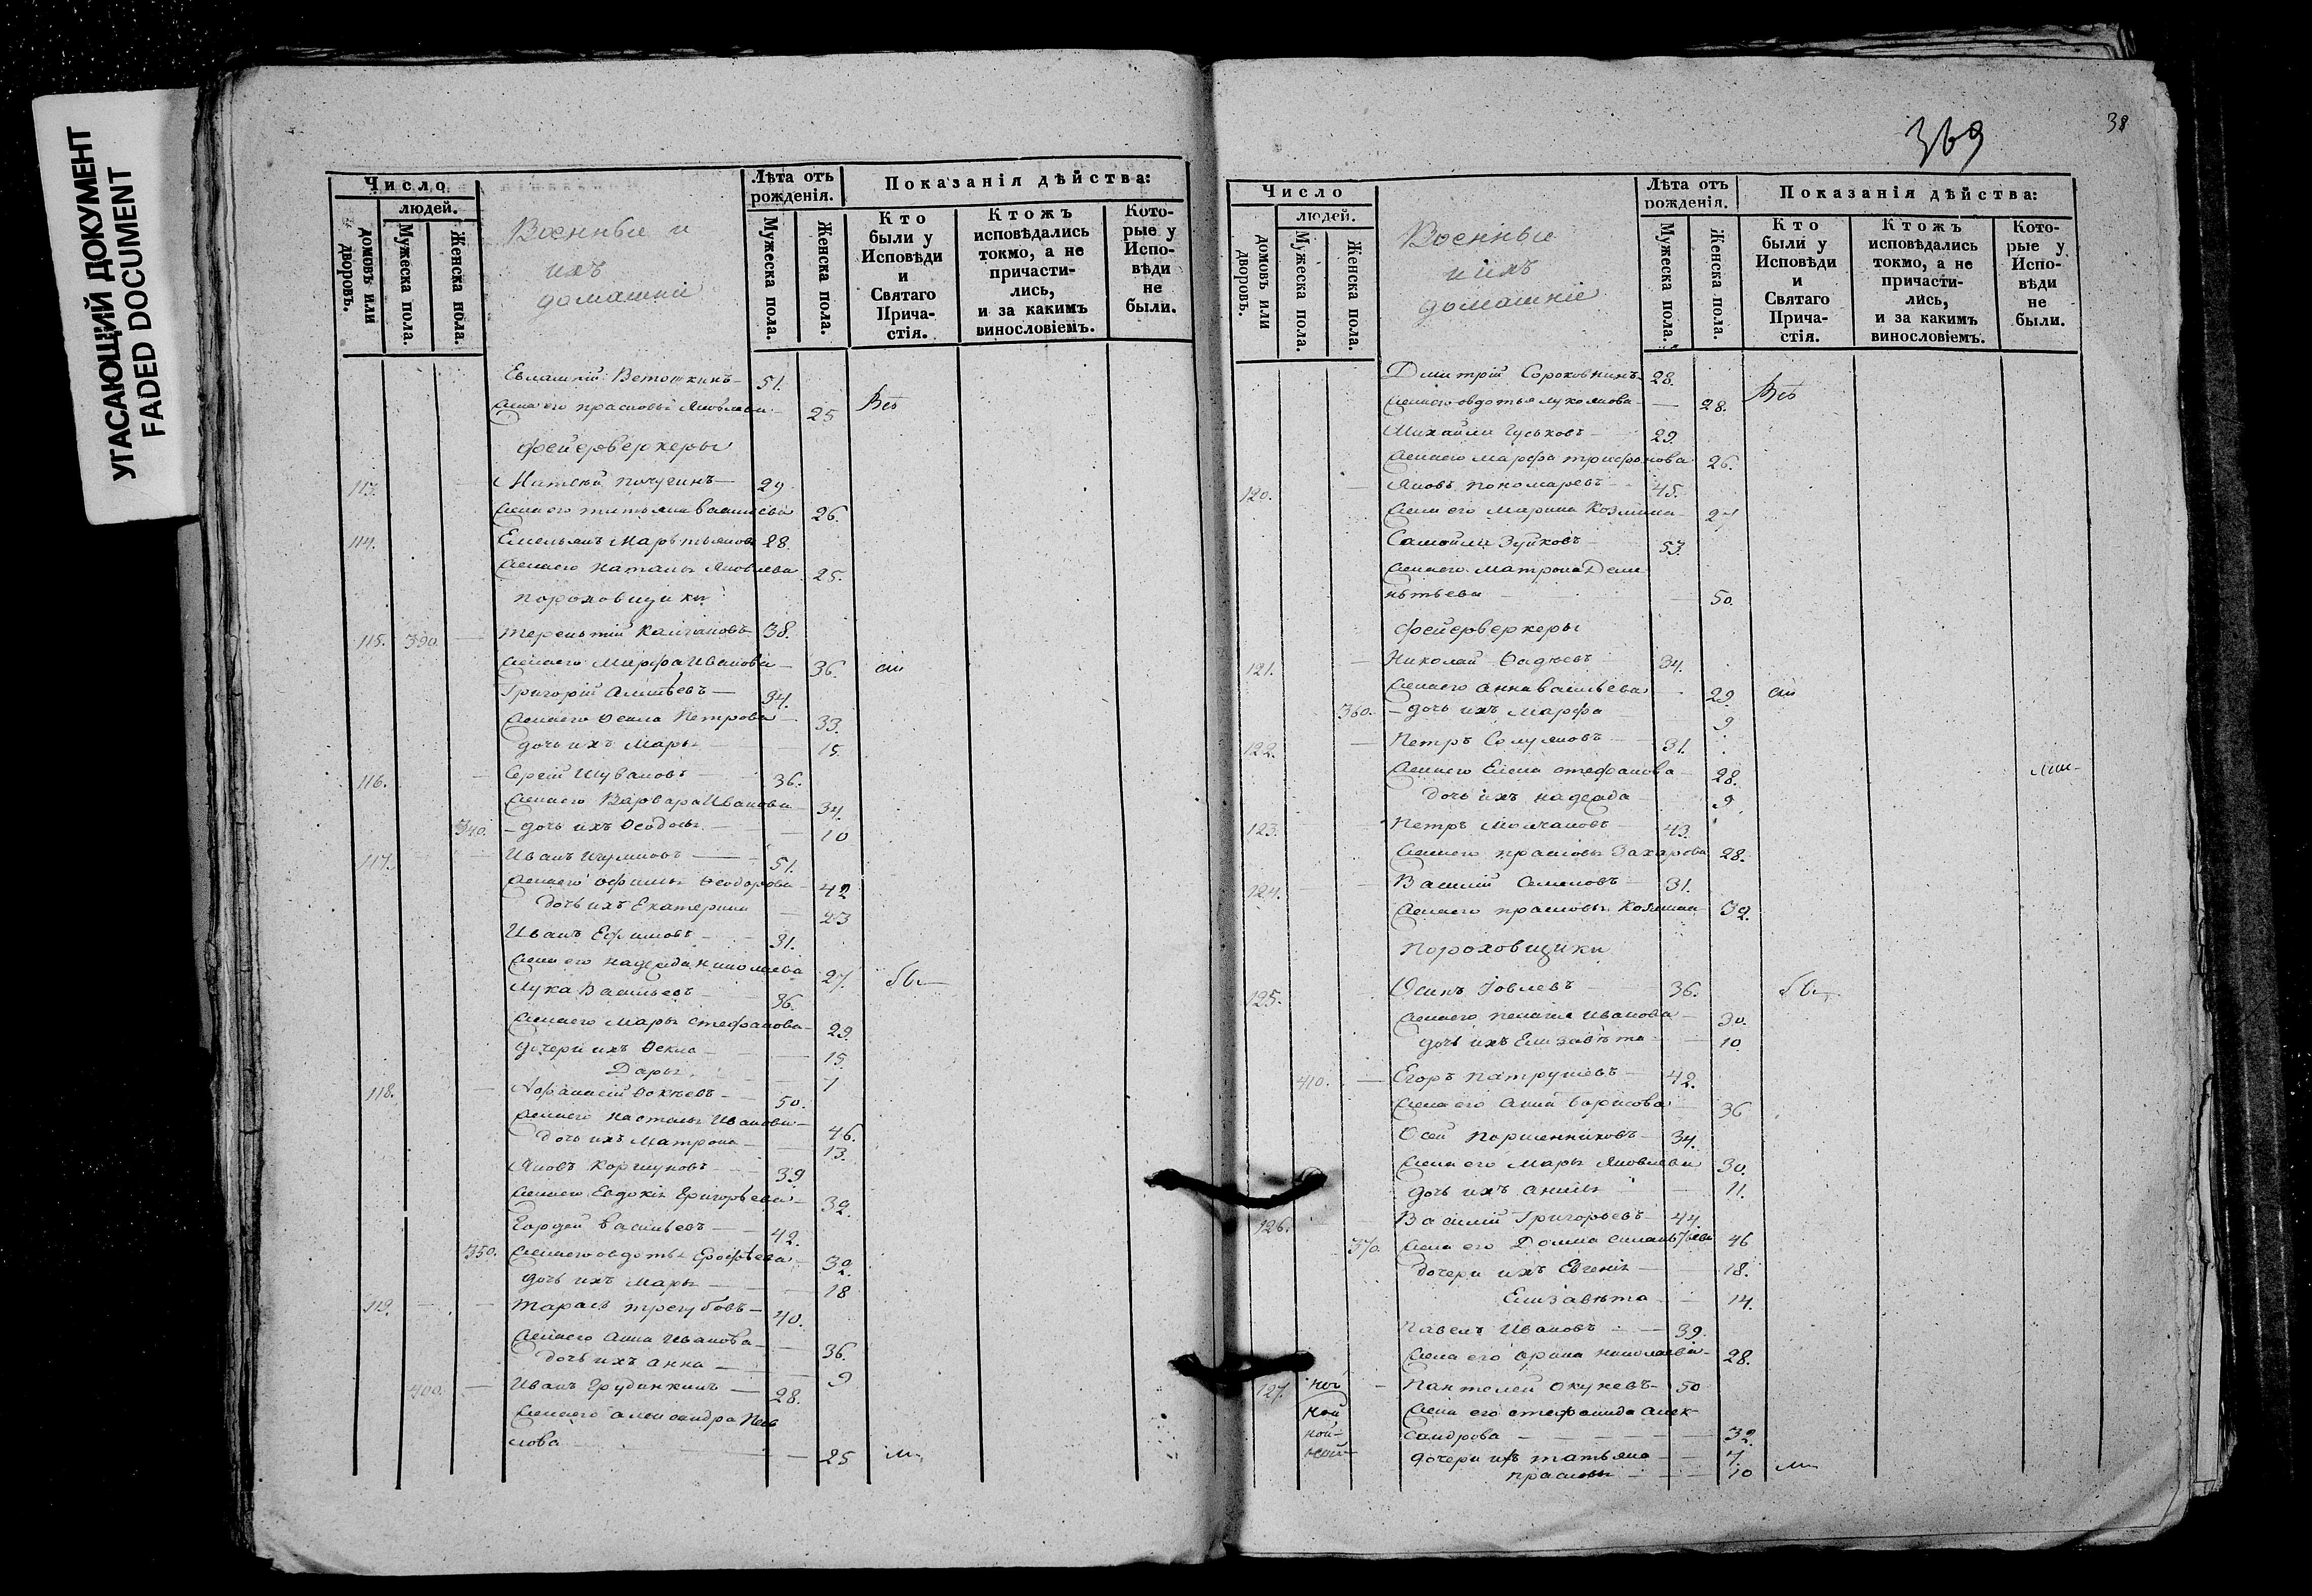 УГАСАЮЩИЙ ДОКУМЕНТ
FADED DOCUMENT
Число
людей.
домовъ или дворовъ.
Мужеска пола.
Женска пола.
Военные и
ихъ
домашніе
Лѣта отъ рожденія.
Мужеска пола.
Женска пола.
Показанія дѣйства:
Кто были у Исповѣди и Святаго Прича-стія.
Ктожъ исповѣдались токмо, а не причасти-лись, и за какимъ винословіемъ.
Кото-рые у Испо-вѣди не были.
Ветошкинъ 51.
жена его Яковлева 25 Всѣ
фейерверкеры
113. Пичугинъ 29
жена его Татьяна Васильева 26.
114. Емельянъ Мартьяновъ 28.
жена его Наталья Яковлева 25.
пороховщики
115. 390. Терентій Колчановъ 38.
жена его Марфа Иванова 36.
Григорій 34.
жена его Ѳекла Петрова 33.
дочь ихъ Марья 15
116. Сергій Шуваловъ 36.
жена его Варвара Иванова 34.
340. дочь ихъ Ѳеодосья 10
117. Иванъ 51.
жена его Ѳеодорова 42
дочь ихъ Екатерина 23
Иванъ Ефимовъ 31.
жена его Надежда Николаева 27.
Лука Васильевъ 36.
жена его Марья Стефанова 29.
дочери ихъ Ѳекла 15.
Дарья 7
118. Афанасій Ѳокѣевъ 50.
жена его Настасья Иванова 46.
дочь ихъ Матрона 13.
Яковъ Коршуновъ 39
жена его Евдокія Григорьева 32.
Гордей Васильевъ 42.
350. жена его Овдотья Ерофѣева 32.
дочь ихъ Марья 18
119. Тарасъ Трегубовъ 40.
жена его Анна Иванова 36.
дочь ихъ Анна 9
400. Иванъ Грудинкинъ 28.
жена его Александра Пав
лова 25
369
38
Число
людей.
домовъ или дворовъ.
Мужеска пола.
Женска пола.
Военные
и ихъ
домашніе
Лѣта отъ рожденія.
Мужеска пола.
Женска пола.
Показанія дѣйства:
Кто были у Исповѣди и Святаго Прича-стія.
Ктожъ исповѣдались токмо, а не причасти-лись, и за какимъ винословіемъ.
Кото-рые у Испо-вѣди не были.
Дмитрій Сороковнинъ 28.
жена его Овдотья 28. Всѣ
Михайла Гуськовъ 29.
жена его Марфа Трифонова 26.
120. Яковъ Пономаревъ 45.
жена его Марина Козмина 27
Самойла Зуйковъ 53.
жена его Матрона Деме
нтьева 50.
фейерверкеры
121. Николай Ѳадѣевъ 34.
жена его Анна Васильева 29
360. дочь ихъ Марфа 9
122. Петръ 31.
жена его Елена Стефанова 28.
дочь ихъ Надежда 9
123. Петръ Молчановъ 43.
жена его Прасковья Захарова 28.
124. Василій Семеновъ 31.
жена его Прасковья Козмина 32.
пороховщики
125. Осипъ Іовлевъ 36.
жена его Пелагея Иванова 30.
дочь ихъ Елизавѣта 10.
410. Егоръ Патрушевъ 42.
жена его Анна Борисова 36
Поршенниковъ 34.
жена его Марья Яковлева 30.
дочь ихъ 11.
126. Василій Григорьевъ 44.
370. жена его Домна 46
дочери ихъ Евгенія 18.
Елизавѣта 14.
Павелъ Ивановъ 39.
жена его Орина Николаева 28.
127. Пантелей Окуневъ 50
жена его Стефанида Алек
сандрова 32.
дочери ихъ Татьяна 7.
Прасковья 10